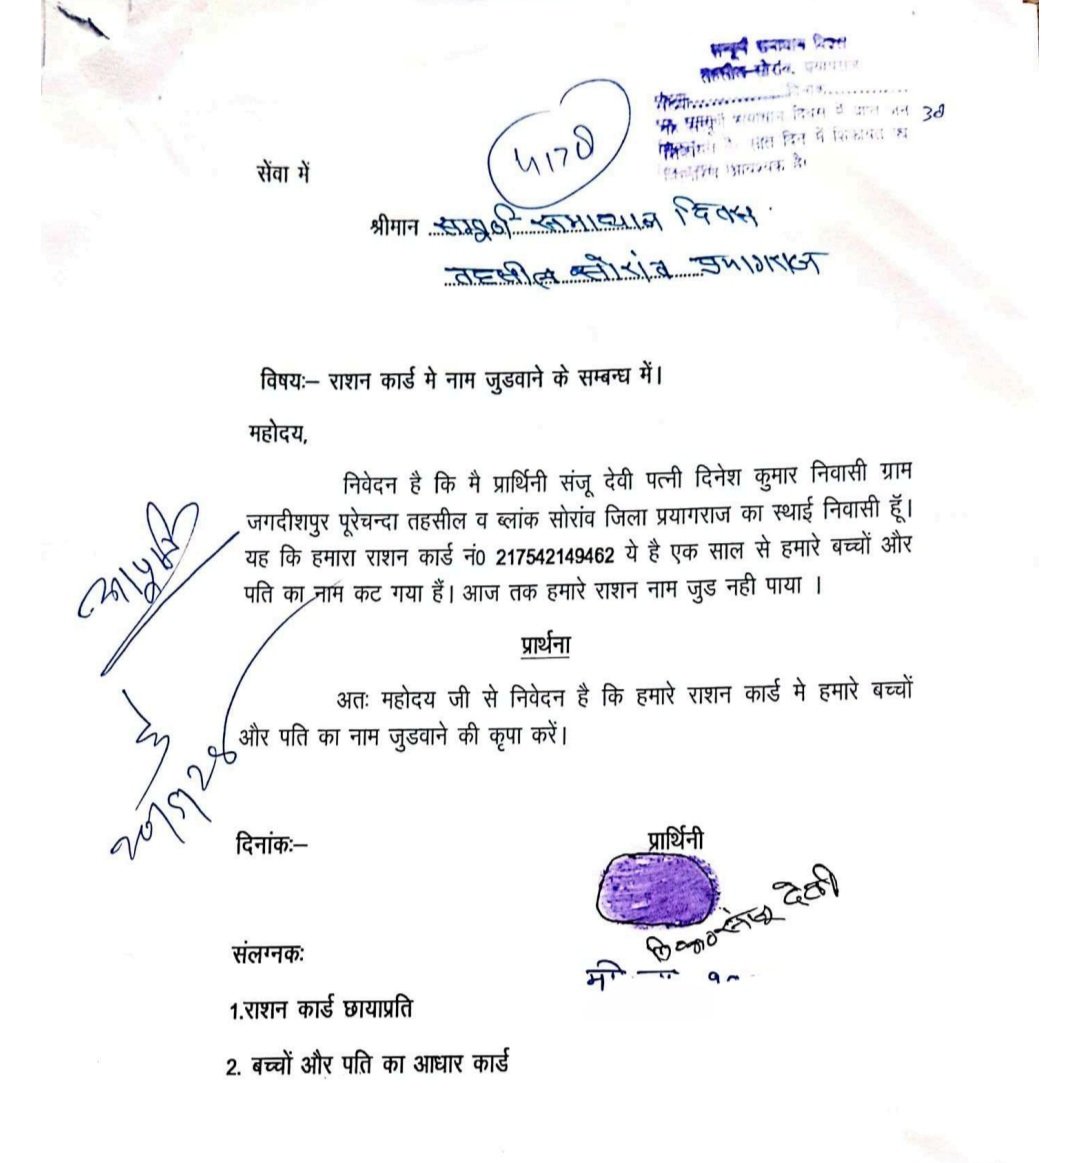 सम्पूर्ण समाधान दिवस
तहसील-सोरांव, प्रयागराज
दिनांक
38
4178
सेंवा में
श्रीमान सम्पूर्ण समाधान दिवस
तहसील सोरांव प्रयागराज
विषयः– राशन कार्ड मे नाम जुडवाने के सम्बन्ध में।
महोदय,
निवेदन है कि मै प्रार्थिनी संजू देवी पत्नी दिनेश कुमार निवासी ग्राम
जगदीशपुर पूरेचन्दा तहसील व ब्लांक सोरांव जिला प्रयागराज का स्थाई निवासी हूँ।
यह कि हमारा राशन कार्ड नं0 217542149462 ये है एक साल से हमारे बच्चों और
पति का नाम कट गया हैं। आज तक हमारे राशन नाम जुड नही पाया ।
प्रार्थना
अतः महोदय जी से निवेदन है कि हमारे राशन कार्ड मे हमारे बच्चों
और पति का नाम जुडवाने की कृपा करें।
दिनांकः–
प्रार्थिनी
देवी
संलग्नकः
1.राशन कार्ड छायाप्रति
2. बच्चों और पति का आधार कार्ड